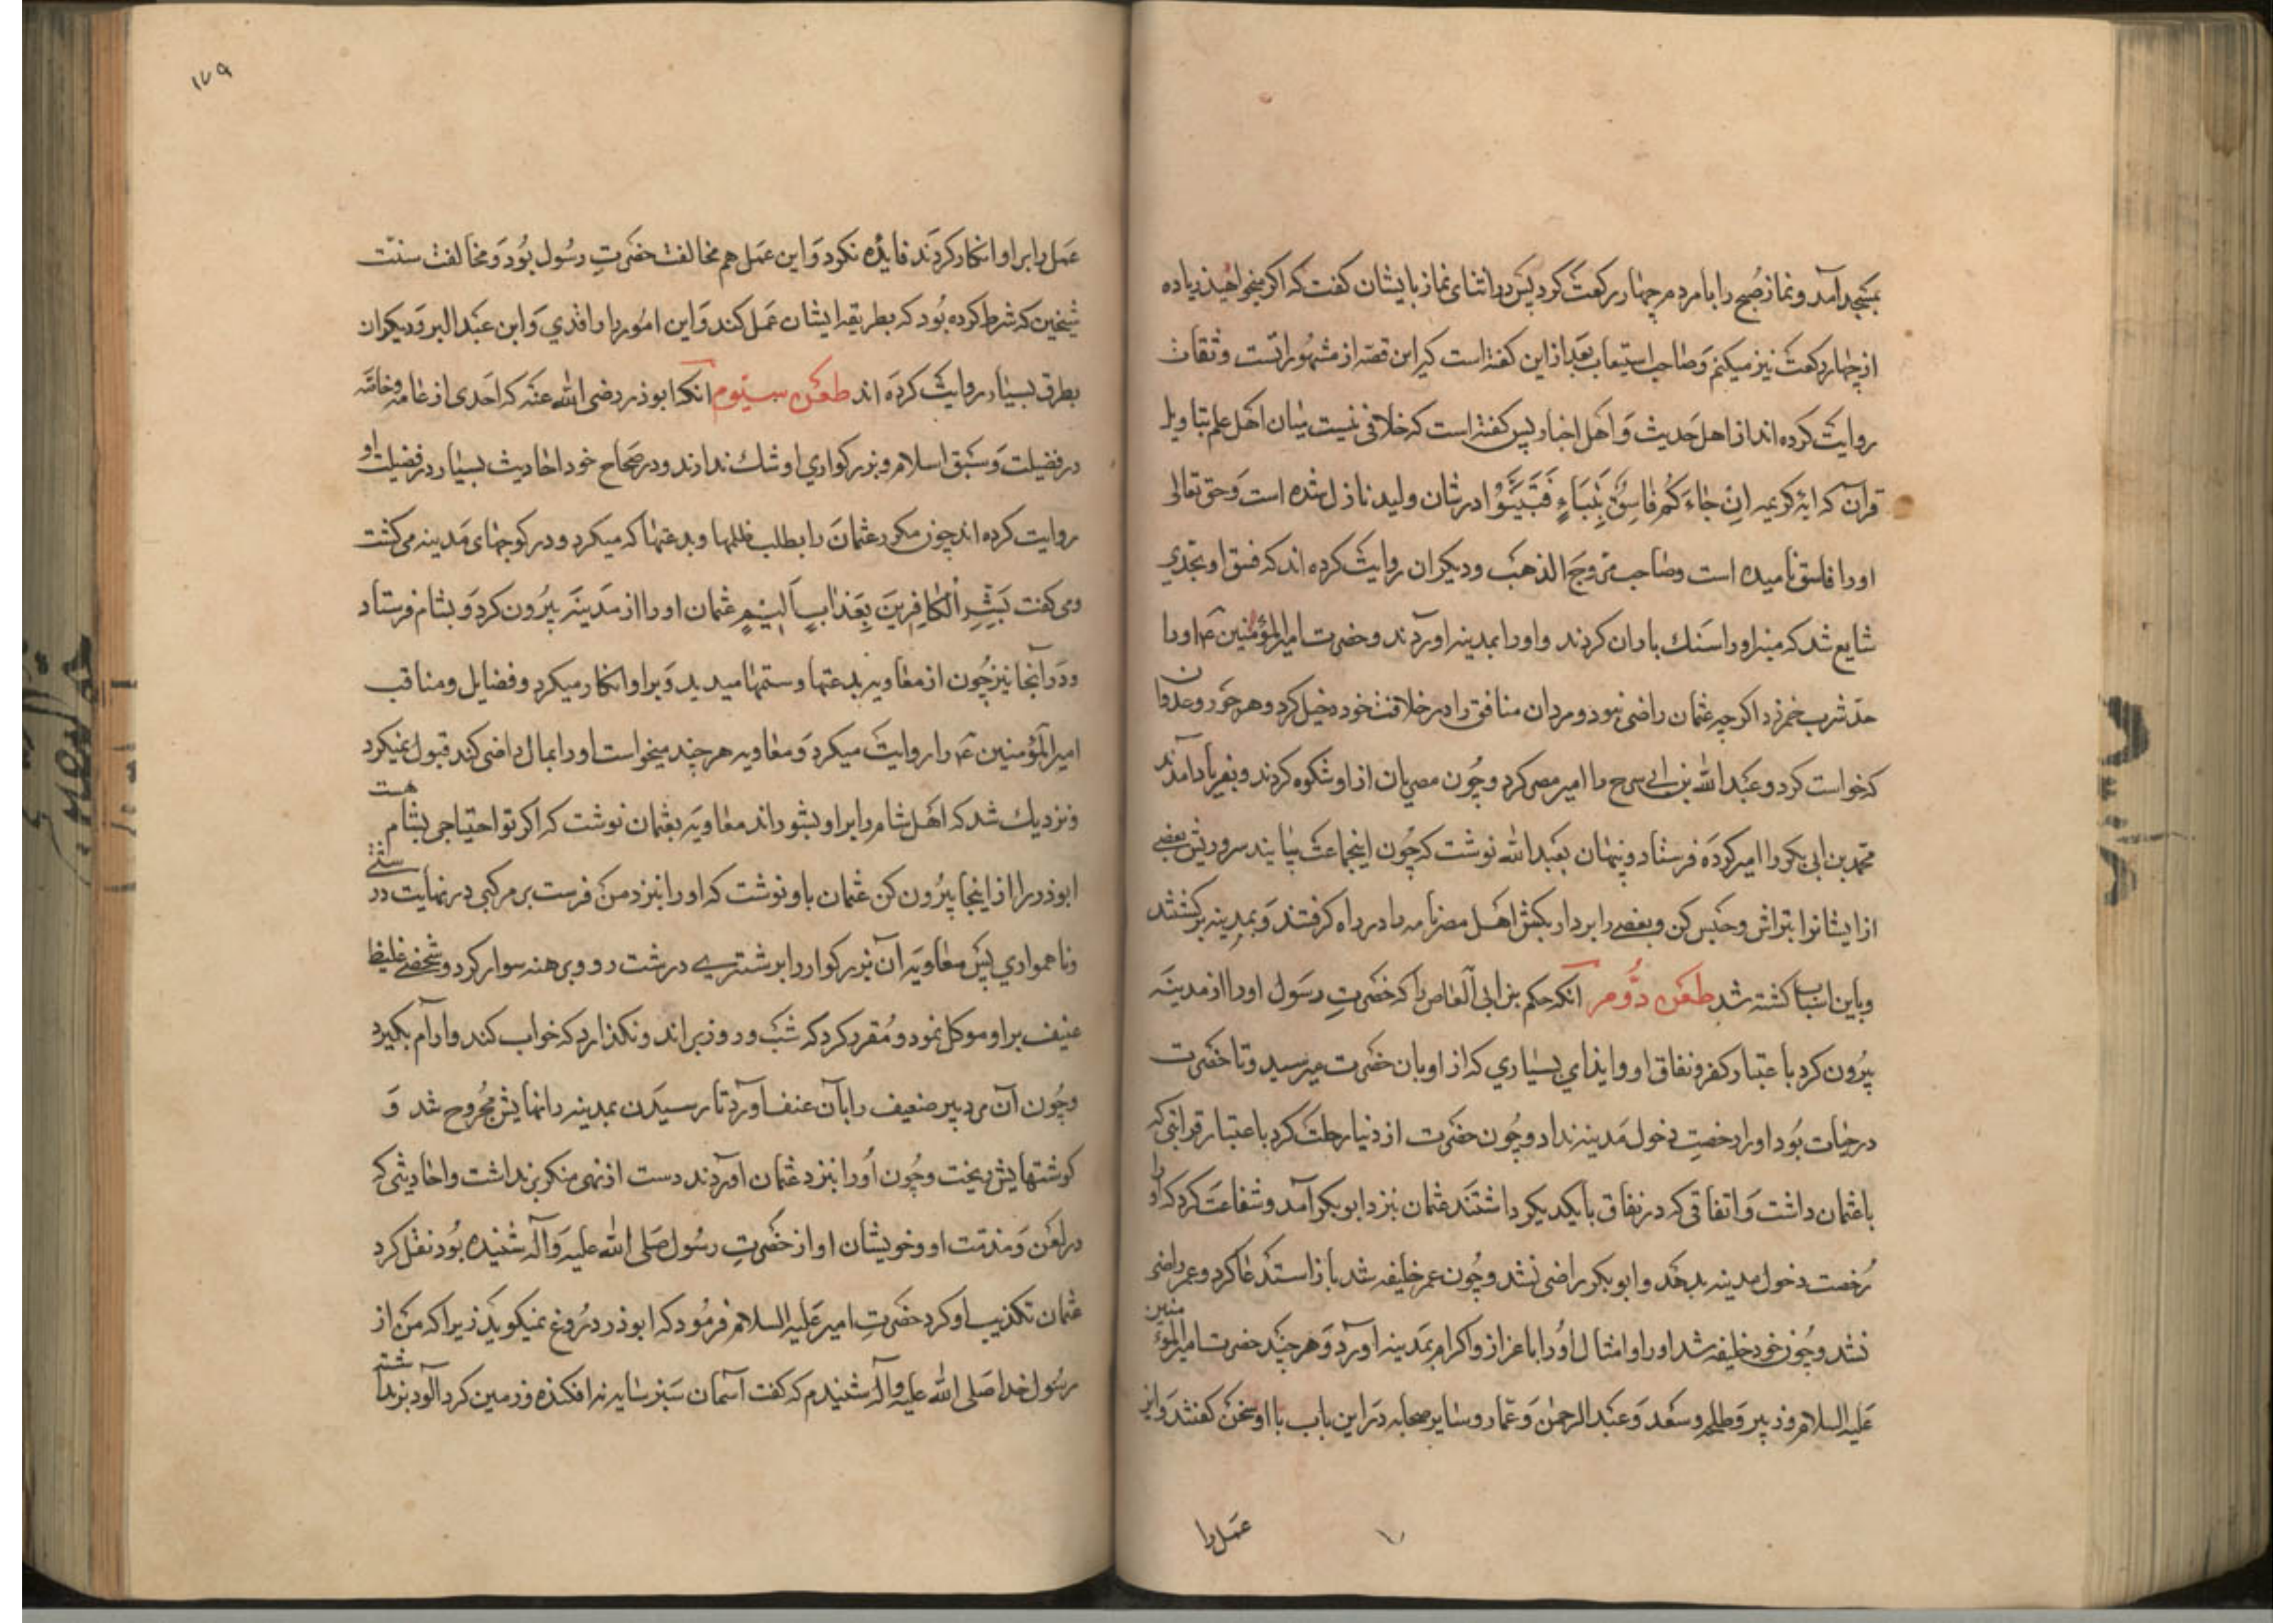 بمسجد آمد و نماز صبح را با مردم چهار رکعت کرد پس در اثنای نماز بایشان کفت که اکر میخواهید زیاده
از چهار رکعت نیز میکنم و صاحب استیعاب بعد از این کفته است که این قصه از مشهوراتست و ثقات
روایت کرده اند از اهل حدیث و اهل اخبار پس کفته است که خلافی نیست میان اهل علم بتاویل
قرآن که ایه کریمه اِنْ جٰاءَکُمْ فٰاسِقٌ بِنَبَاءٍ فَتَبَیَّنُوْا در شان ولید نازل شده است و حق تعالی
او را فاسق نامیده است و صاحب مروج الذهب و دیکران روایت کرده اند که فسق او بحدی
شایع شد که مینرا و را سنک باران کردند و او را بمدینه اوردند و حضرت امیر المؤمنین ع او را
حد شرب خمر زد اکرچه عثمان راضی نبود و مردان منافق را در خلافت خود دخیل کرد و هر جور و عدوان
که خواست کرد و عبد الله بن ابی سرح را امیر مصر کرد و چون مصریان از او شکوه کردند و بفریاد آمدند
محمد بن ابی بکر را امیر کرده فرستاد و پنهان بعبد الله نوشت که چون اینجماعت بیایند سر و ریش بعضی
از ایشانرا بتراش و حبس کن و بعضی را بر دار بکش اهل مصر نامه را در راه کرفتند و بمدینه برکشتند
و باین اسباب کشته شد طعن دُوّم آنکه حکم بن ابی العاص را که حضرتِ رسول او را از مدینه
بیرون کرد باعتبار کفر و نفاق او و ایذای بسیاری که از او بان حضرت میرسید و تا حضرت
در حیات بود او را رخصتِ دخول مدینه نداد و چون حضرت از دنیا رحلت کرد باعتبار قرابتی که
با عثمان داشت و اتفاقی که در نفاق با یکدیکر داشتند عثمان نزد ابو بکر آمد و شفاعت کرد که او را
رخصت دخول مدینه بدهد و ابو بکر راضی نشد و چون عمر خلیفه شد باز استدعا کرد و عمر راضی
نشد و چون خود خلیفه شد او را و امثال او را با عزاز و اکرام بمدینه اورد و هر چند حضرت امیر المؤمنین
علیه السلام و زبیر و طلحه و سعد و عبد الرحمن و عمار و سایر صحابه در این باب با او سخن کفتند و این
عمل را
۱۷۹
عمل را بر او انکار کردند فایده نکرد و این عمل هم مخالفت حضرتِ رسول بود و مخالفت سنّت
شیخین که شرط کرده بود که بطریقه ایشان عمل کند و این امور را واقدی و ابن عبد البر و دیکران
بطرق بسیار روایت کرده اند طعن سیّوم آنکه ابوذر رضی الله عنه که احدی از عامه و خاصّه
در فضیلت و سبق اسلام و بزرکواری او شک ندارند و در صحاح خود احادیث بسیار در فضیلت او
روایت کرده اند چون مکرر عثمان را بطلب ظلمها و بدعتها که میکرد و در کوچهای مدینه می کشت
و می کفت بَشِّرِ الْکٰافِرِینَ بِعَذٰابٍ اَلِیْمٍ عثمان او را از مدینه بیرون کرد و بشام فرستاد
و در آنجا نیز چون از معاویه بدعتها و ستمها میدید و بر او انکار میکرد و فضایل و مناقب
امیر المؤمنین ع را روایت میکرد و معاویه هر چند میخواست او را بمال راضی کند قبول نمیکرد
و نزدیک شد که اهل شام را بر او بشوراند معاویه بعثمان نوشت که اکر تو احتیاجی بشام هست
ابوذر را از اینجا بیرون کن عثمان باو نوشت که او را بنزد من فرست بر مرکبی در نهایت درشتی
و ناهمواری پس معاویه آن بزرکوار را بر شتری درشت رو و برهنه سوار کرد و شخصی غلیظ
عنیف بر او موکل نمود و مقرر کرد که شب و روز براند و نکذارد که خواب کند و آرام بکیرد
و چون آن مرد پیر ضعیف را بآن عنف آورد تا رسیدن بمدینه رانهایش مجروح شد و
کوشتهایش ریخت و چون او را بنزد عثمان آوردند دست از نهی منکر بر نداشت و احادیثی که
در لعن و مذمت او و خویشان او از حضرتِ رسول صلی الله علیه و آله شنیده بود نقل کرد
عثمان تکذیب او کرد حضرتِ امیر علیه السلام فرمود که ابوذر دروغ نمیکوید زیرا که من از
رسول خدا صلی الله علیه و آله شنیدم که کفت آسمان سبز سایه نیفکنده و زمین کرد آلود بر نداشته